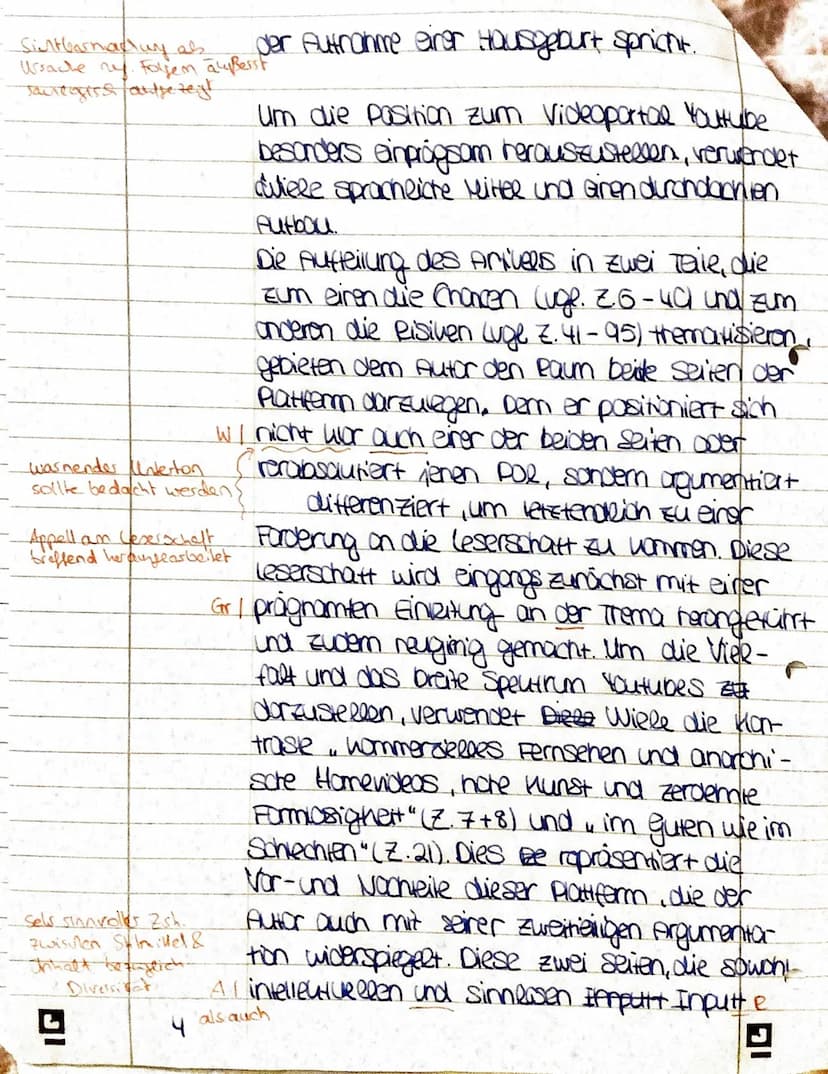 Sichtbarmachung als
Ursache Folgen äußerst
aufgezeigt
der Aufnahme einer Hausgeburt spricht.
Um die Position zum Videoportal Youtube
besonders einprägsam herauszustellen, verwendet
Wiele sprachliche Mittel und einen durchdachten
Aufbau.
Die Aufteilung des Artikels in zwei Teile, die
zum einen die Chancen (vgl. Z. 6-40) und zum
anderen die Risiken (vgl. Z. 41-95) thematisieren,
gebieten dem Autor den Raum beide Seiten der
Plattform darzulegen. Denn er positioniert sich
W/ nicht klar auch einer der beiden Seiten oder
warnender Unterton
sollte bedacht werden
verabsolutiert jenen Pol, sondern argumentiert
differenziert, um letztendlich zu einer
Appell an Leserschaft
treffend herausgearbeitet
Forderung an die Leserschaft zu kommen. Diese
Leserschaft wird eingangs zunächst mit einer
Gr/ prägnanten Einleitung an der Thema herangeführt
und zudem neugirig gemacht. Um die Viel-
falt und das breite Spektrum Youtubes
darzustellen, verwendet Wiele die Kon-
traste „kommerzielles Fernsehen und anarchi-
sche Homevideos, hohe Kunst und zerdehnte
Formlosigkeit" (Z. 7+8) und „im guten wie im
Schlechten" (Z. 21). Dies repräsentiert die
Vor- und Nachteile dieser Plattform, die der
sehr sinnvoller Zsh.
zwischen Stilmittel &
Inhalt bezüglich
Diversität
Autor auch mit seiner zweiteiligen Argumenta-
tion widerspiegelt. Diese zwei Seiten, die sowohl
A/ intellektuellen und sinnlosen Input e
als auch
4